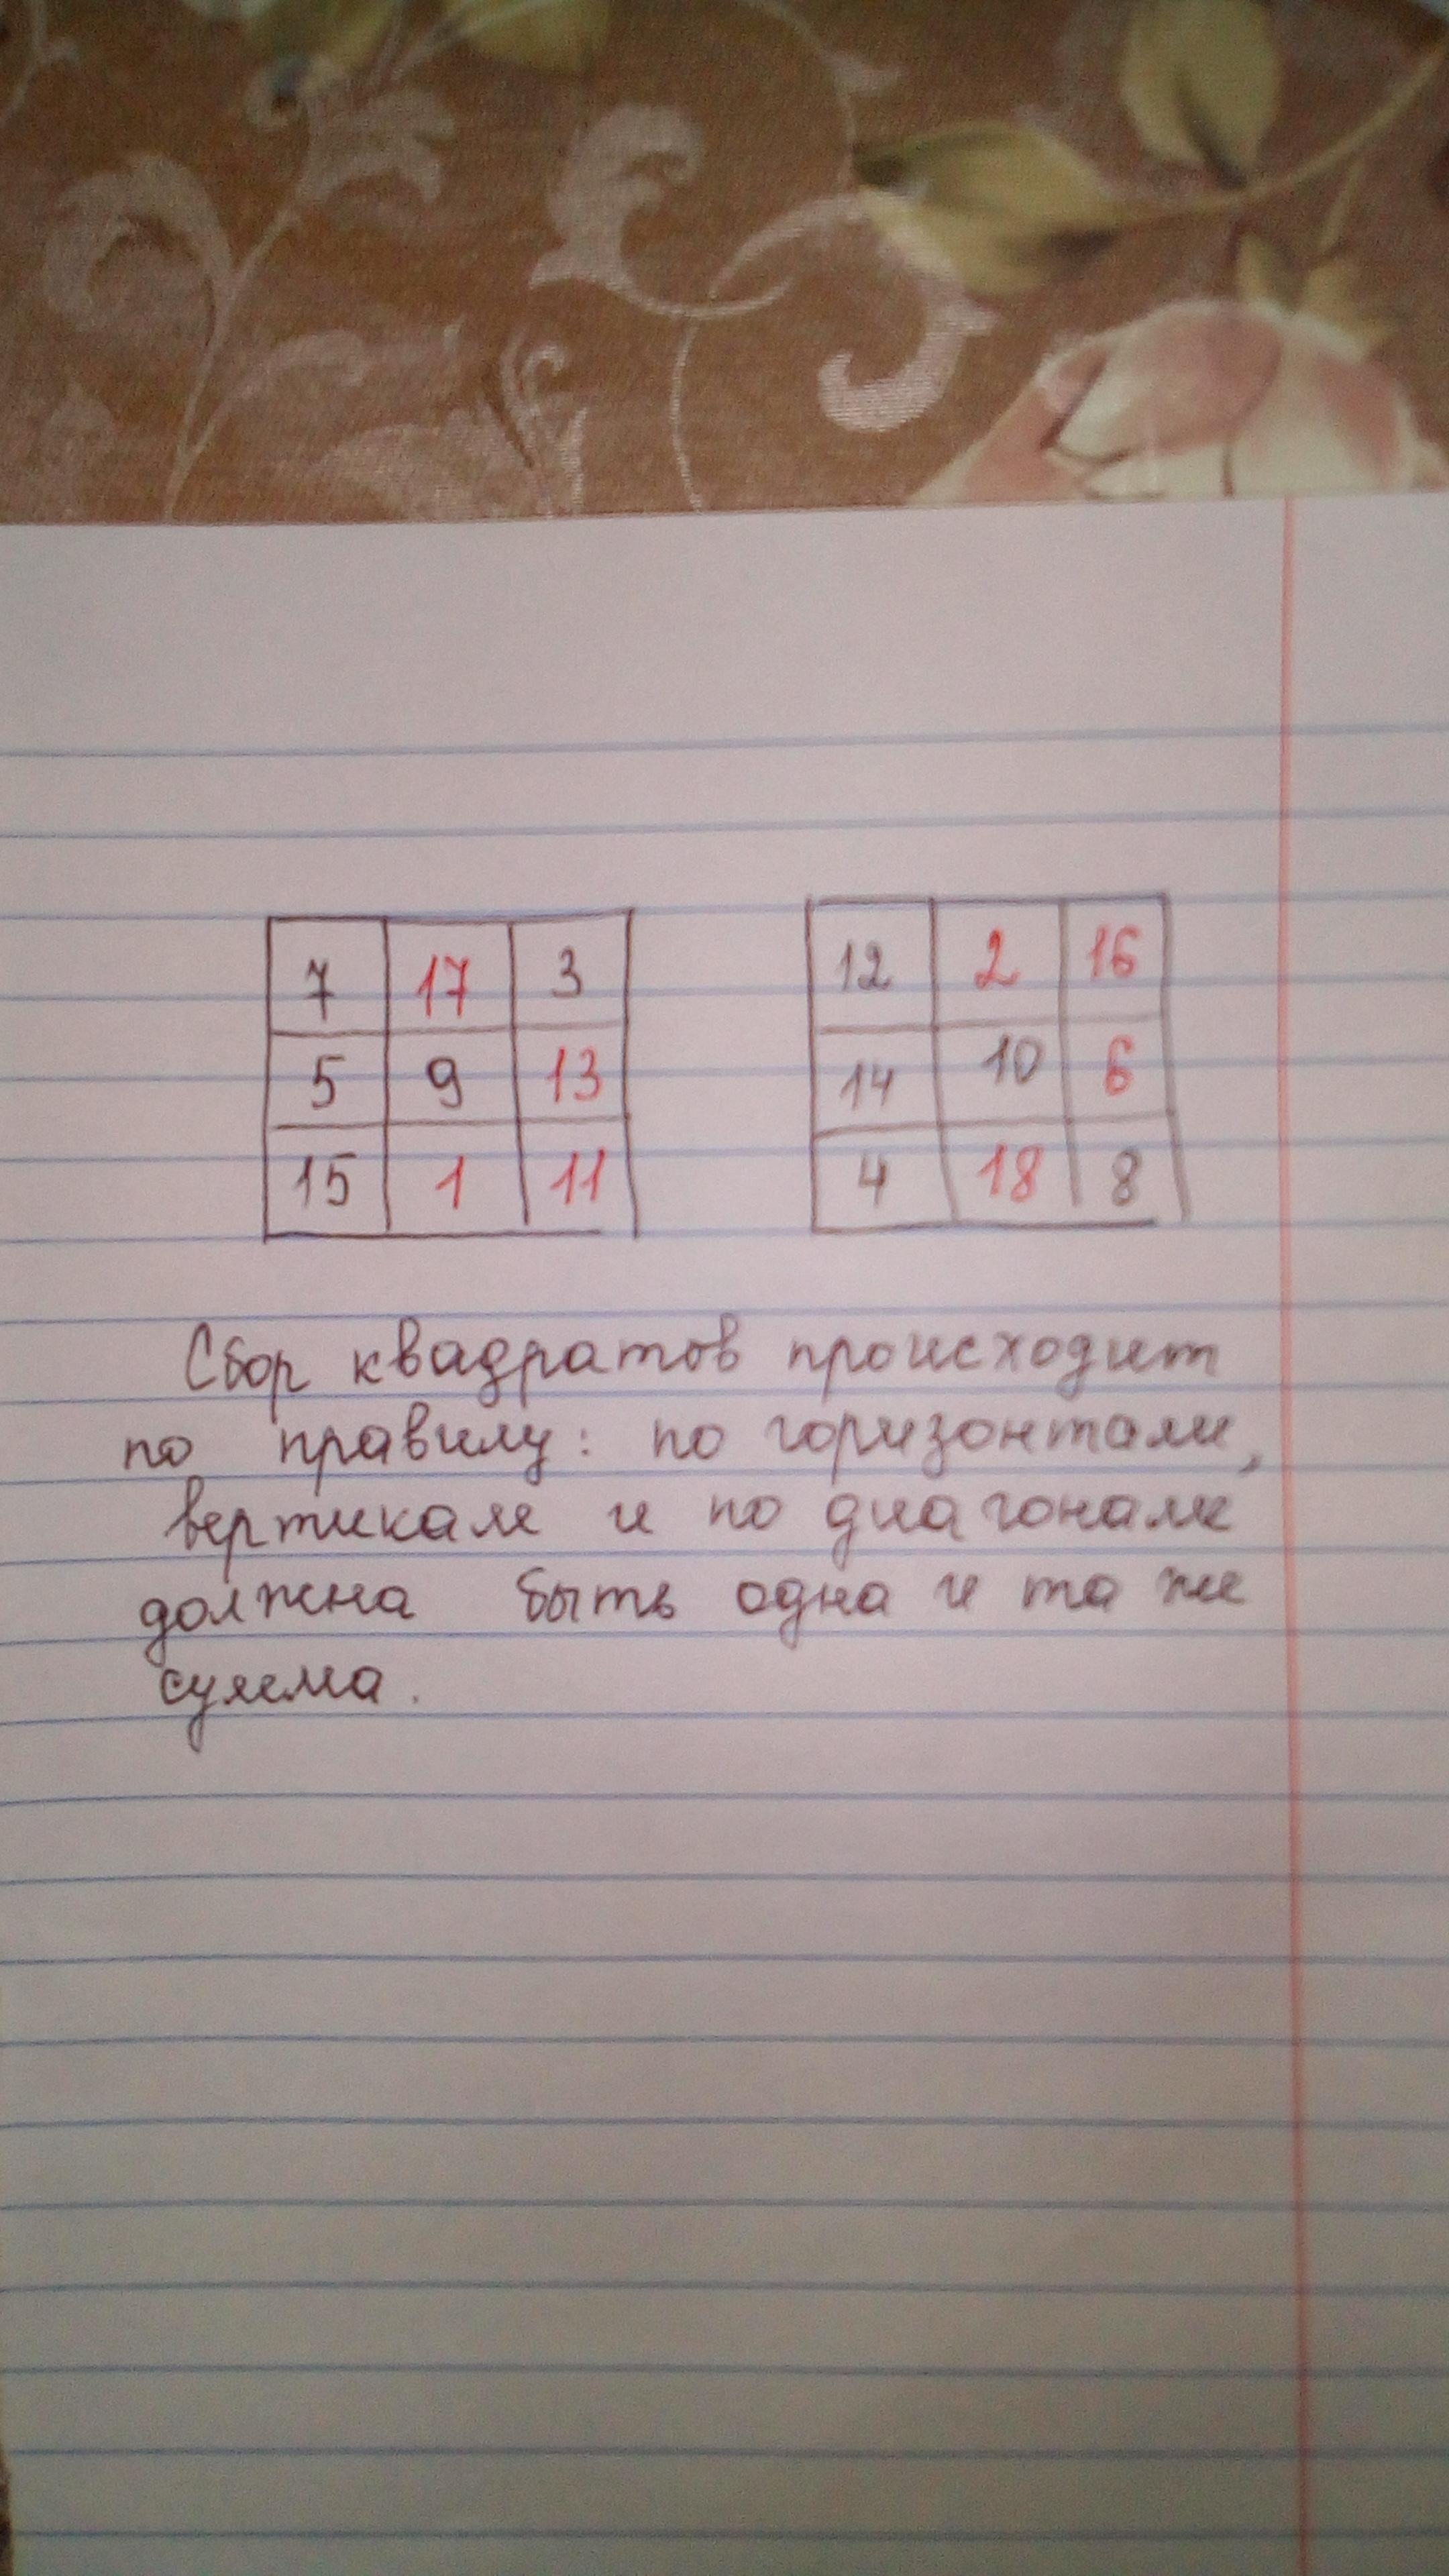 7 17 3
5 9 13
15 1 11
12 2 16
14 10 6
4 18 8
Сбор квадратов происходит
по правилу: по горизонтали,
вертикале и по диагонали
должна быть одна и та же
сумма.